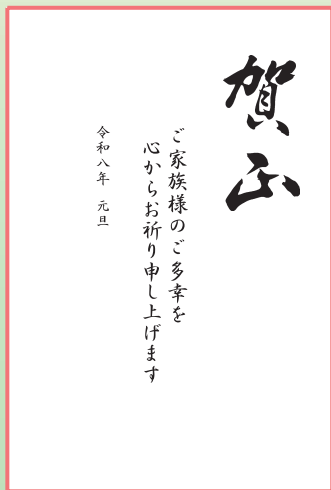 賀正
ご家族様のご多幸を
心からお祈り申し上げます
令和八年　元旦